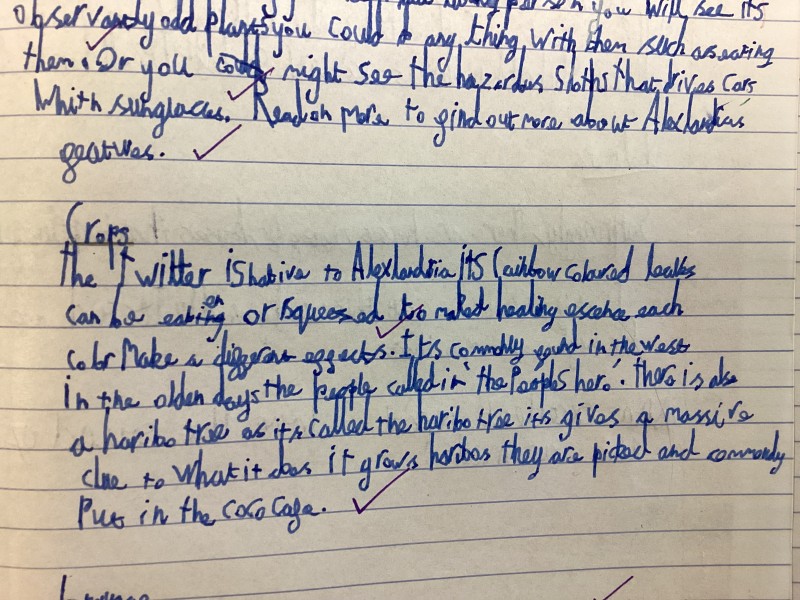 person you will see its
observantly odd plants you could do any thing with them such as eating
them. Or you might see the hazardous sloths that drives cars
whith sunglaces. Read on more to gind out more about Alexlandria's
geatures.
Crops
The Twitter is hative to Alexlandria its rainbow coloured leaks
can be eaten or squeesed to maked healing escence each
color Make a diggerent eggects. It's commonly gound in the west
in the olden days the people called in 'the Peoples hero'. There is also
a haribo tree as it's called the haribo tree its gives a massive
clue to what it does it grows haribos they are picked and commonly
Put in the coco Cage.